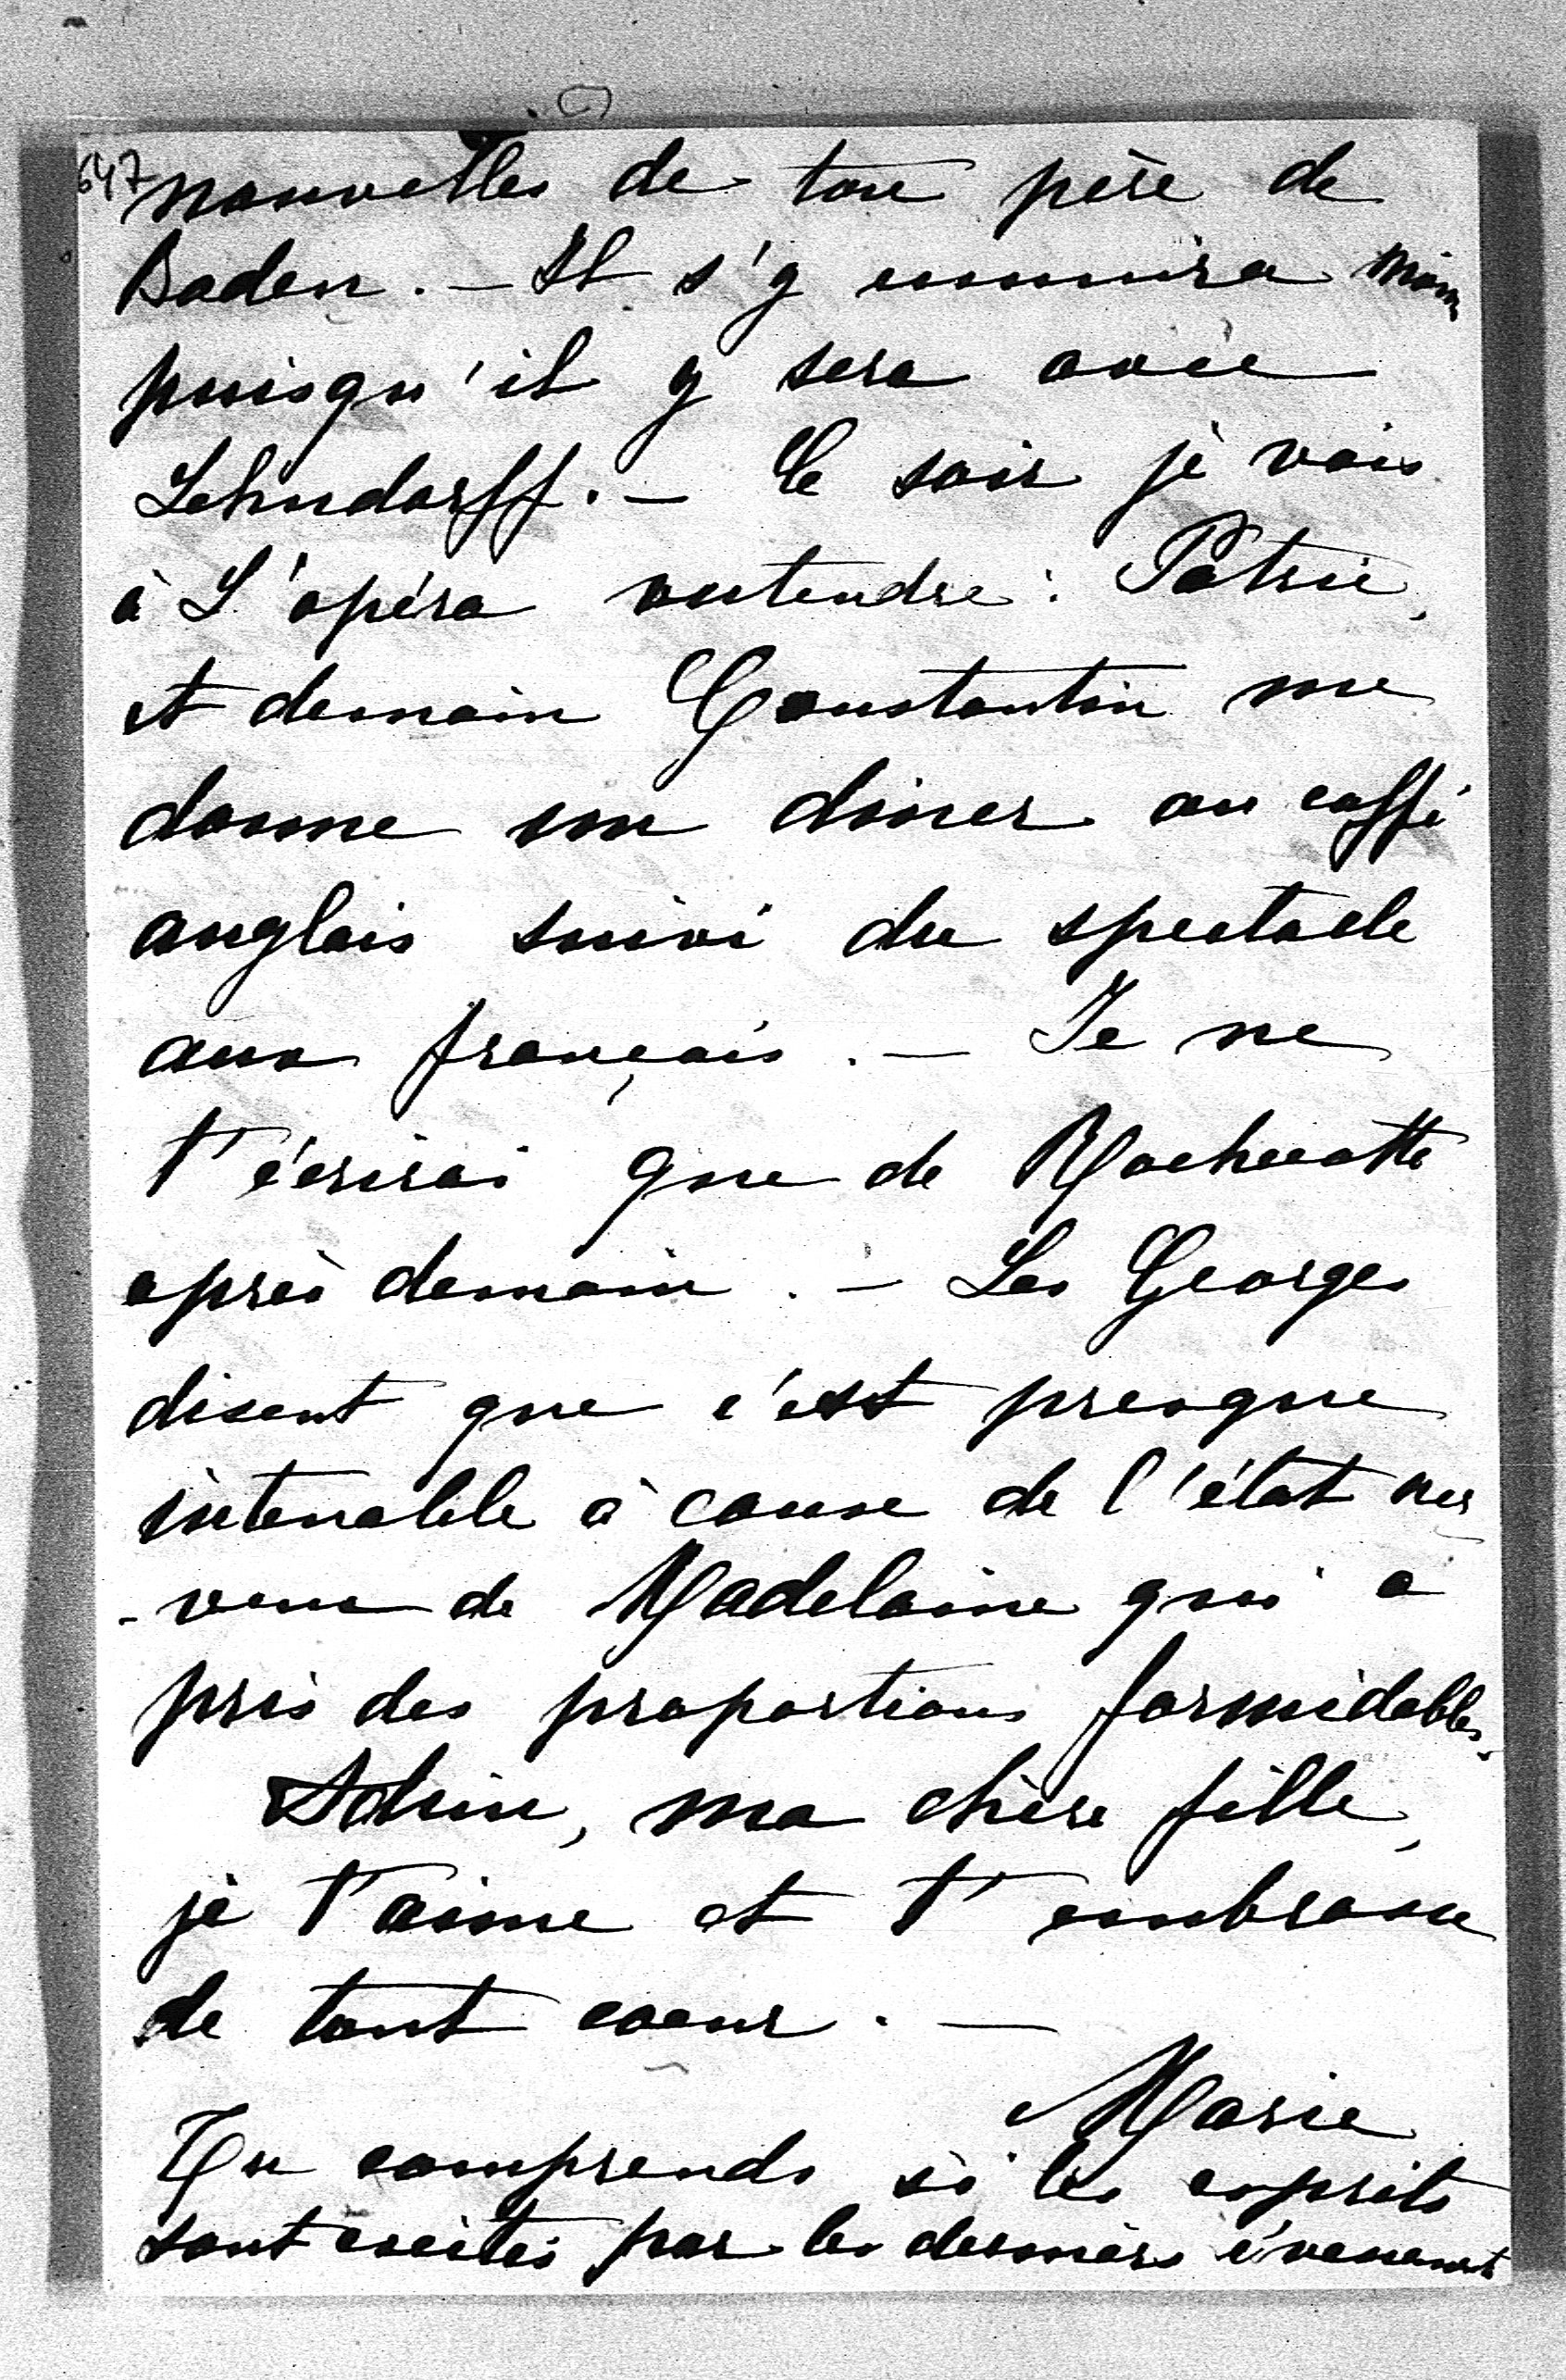 647
nouvelles de ton père de
Baden. – Il s'y ennuira moins
puisqu'il y sera avec
Lehndorff. – Ce soir je vais
à L'opéra entendre : Patrie,
et demain Constantin me
donne un diner au caffé
anglais suivi du spectacle
aux français. – Je ne
t'écrirai que de Rochecotte
après demain. – Les Georges
disent que c'est presque
intenable à cause de l'état ner
-veux de Madelaine qui a
pris des proportions formidables.
Adieu, ma chère fille,
je t'aime et t'embrasse
de tout coeur. –
Marie
Tu comprends si les esprits
sont excités par les derniers évenement